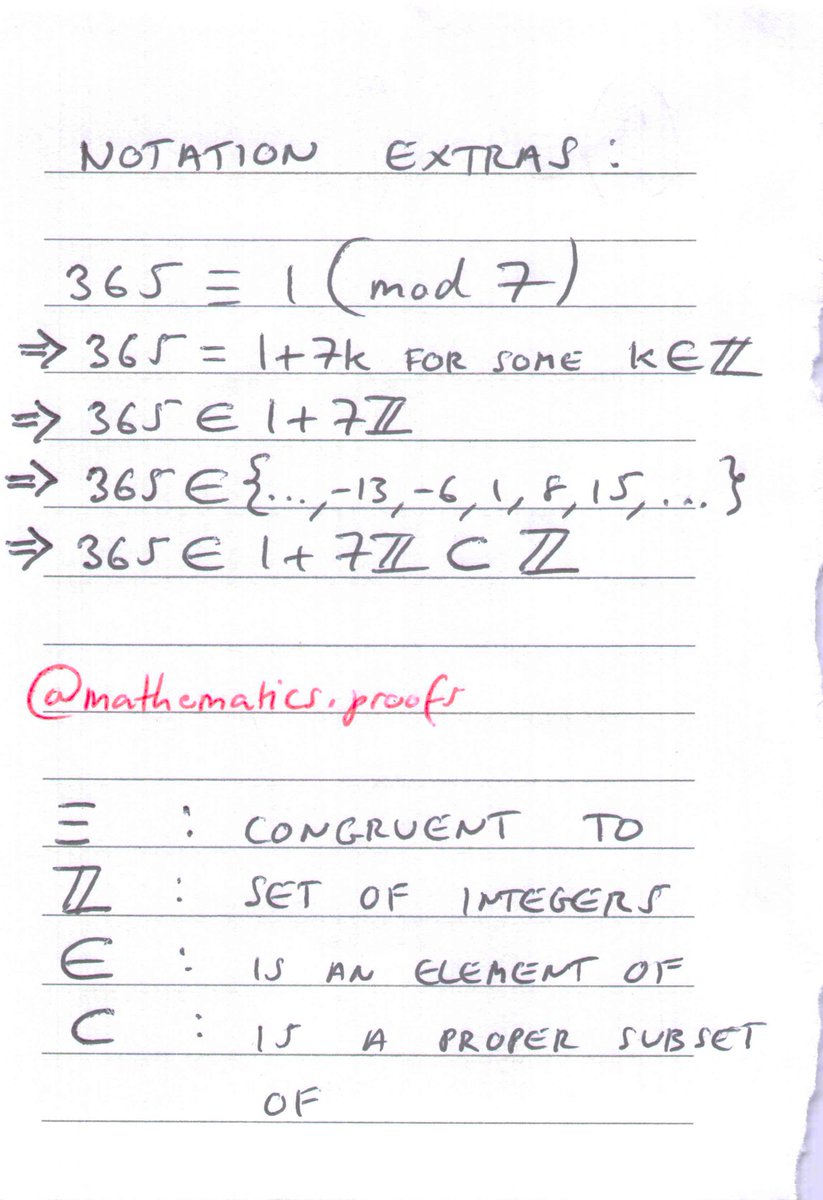 NOTATION EXTRAS:
365 ≡ 1 (mod 7)
⇒ 365 = 1+7k FOR SOME k∈ℤ
⇒ 365 ∈ 1+7ℤ
⇒ 365 ∈ {..., -13, -6, 1, 8, 15, ...}
⇒ 365 ∈ 1+7ℤ ⊂ ℤ
@mathematics.proofs
≡ : CONGRUENT TO
ℤ : SET OF INTEGERS
∈ : IS AN ELEMENT OF
⊂ : IS A PROPER SUBSET
OF